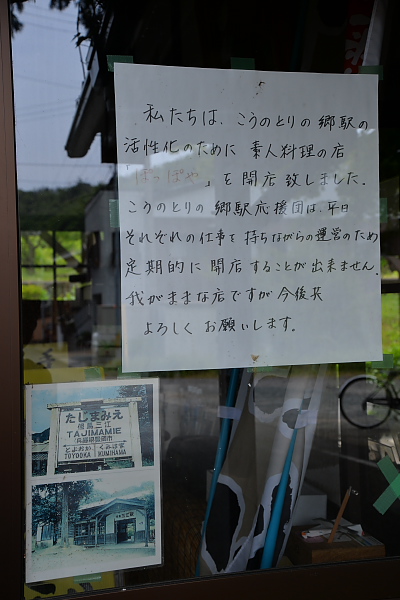 私たちは、こうのとりの郷駅の
活性化のために 素人料理の店
「ぽっぽや」を開店致しました。
こうのとりの郷駅応援団は、平日
それぞれの仕事を持ちながらの運営のため
定期的に開店することが出来ません。
我がままな店ですが今後共
よろしくお願いします。
たじまみえ
但馬三江
TAJIMAMIE
(兵庫県豊岡市)
とよおか くみはま
TOYOOKA KUMIHAMA